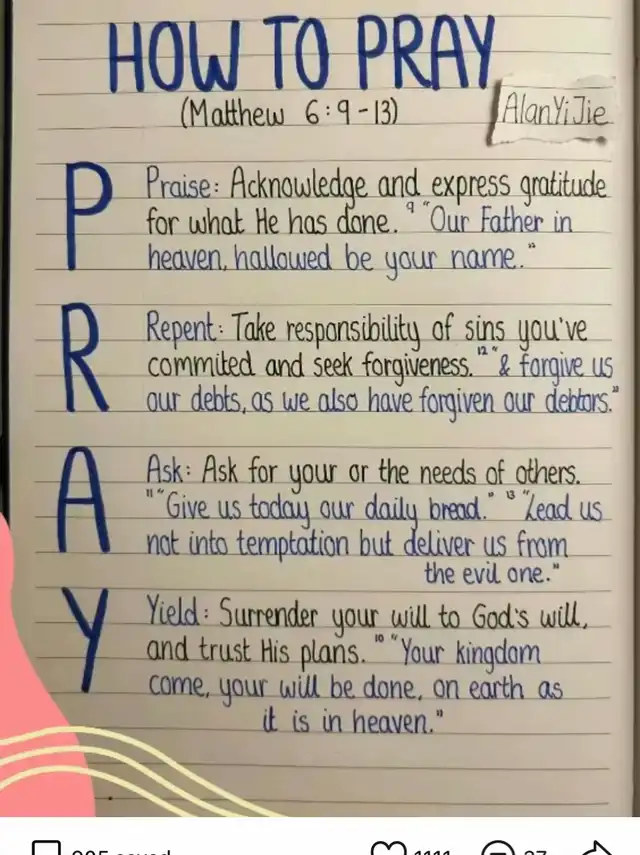 HOW TO PRAY
(Matthew 6:9-13)
AlanYiJie
P
Praise: Acknowledge and express gratitude
for what He has done. ⁹ "Our Father in
heaven, hallowed be your name."
R
Repent: Take responsibility of sins you've
commited and seek forgiveness. ¹² "& forgive us
our debts, as we also have forgiven our debtors."
A
Ask: Ask for your or the needs of others.
¹¹ "Give us today our daily bread." ¹³ "Lead us
not into temptation but deliver us from
the evil one."
Y
Yield: Surrender your will to God's will,
and trust His plans. ¹⁰ "Your kingdom
come, your will be done, on earth as
it is in heaven."